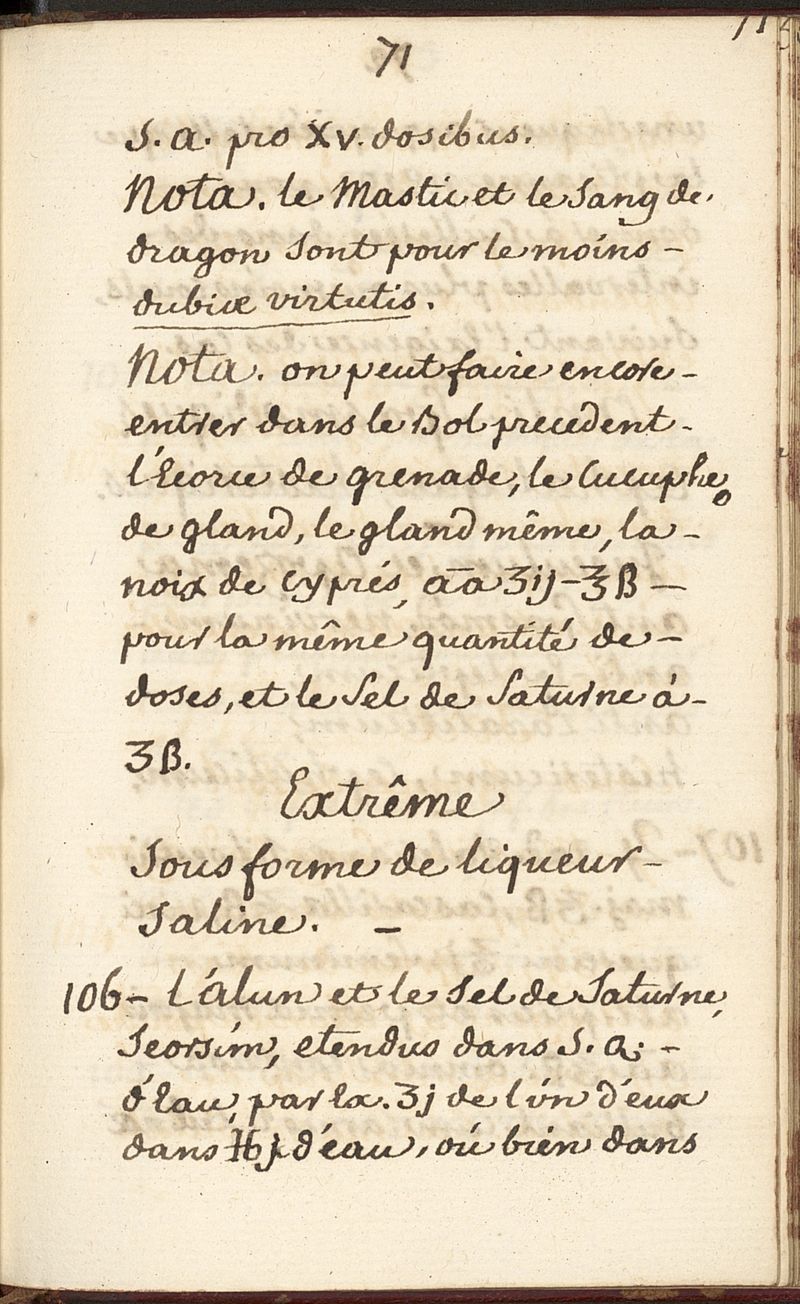 71
71
S. a. pro XV. dosibus.
Nota. le Mastic et le Sang de
dragon sont pour le moins -
dubiæ virtutis.
Nota. on peut faire encore -
entrer dans le Bol precedent -
l'Ecorce de grenade, le Cucuphe
de gland, le gland même, la -
noix de cyprés, āā ʒij - ℥ß -
pour la même quantité de -
doses, et le Sel de Saturne à -
ʒß.
Extrême
Sous forme de liqueur -
Saline. -
106 - l'Alun et le Sel de Saturne,
Seorsim, etendus dans S. q: -
d'Eau, par Ex. ʒj de l'un d'eux
dans ℔j d'eau, où bien dans